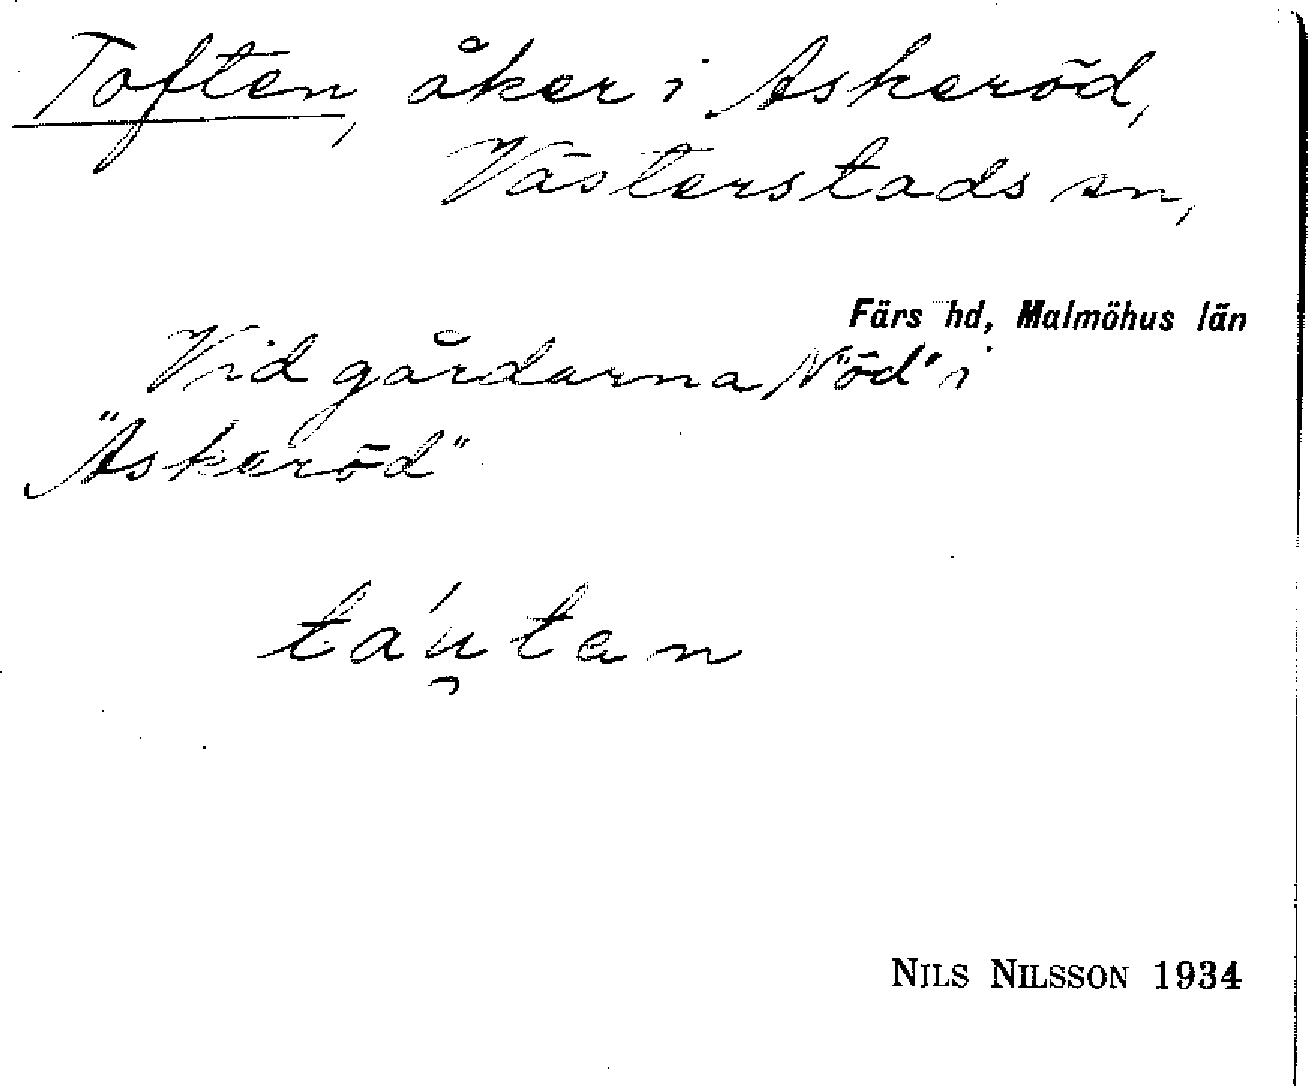 Toften, åker i Askeröd,
Västerstads sn,
Färs hd, Malmöhus län
Vid gårdarna N"öd" i
"Askeröd"
ta´u̯ten
NILS NILSSON 1934